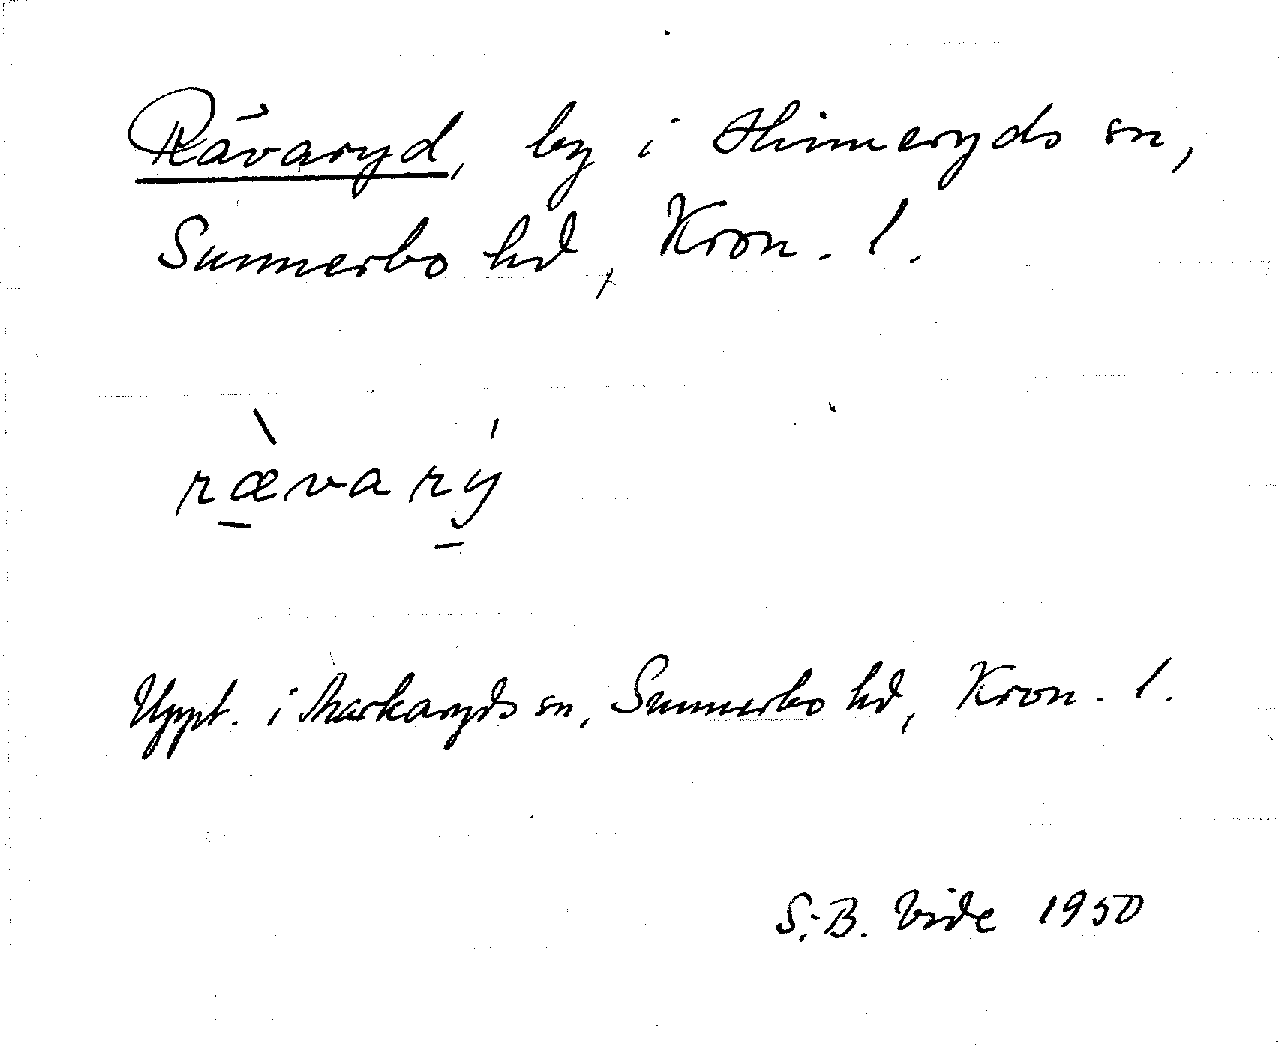 Rävaryd, by i Hinneryds sn,
Sunnerbo hd, Kron. l.
rævarý
Uppt. i Markaryds sn, Sunnerbo hd, Kron. l.
S.-B. Vide 1950